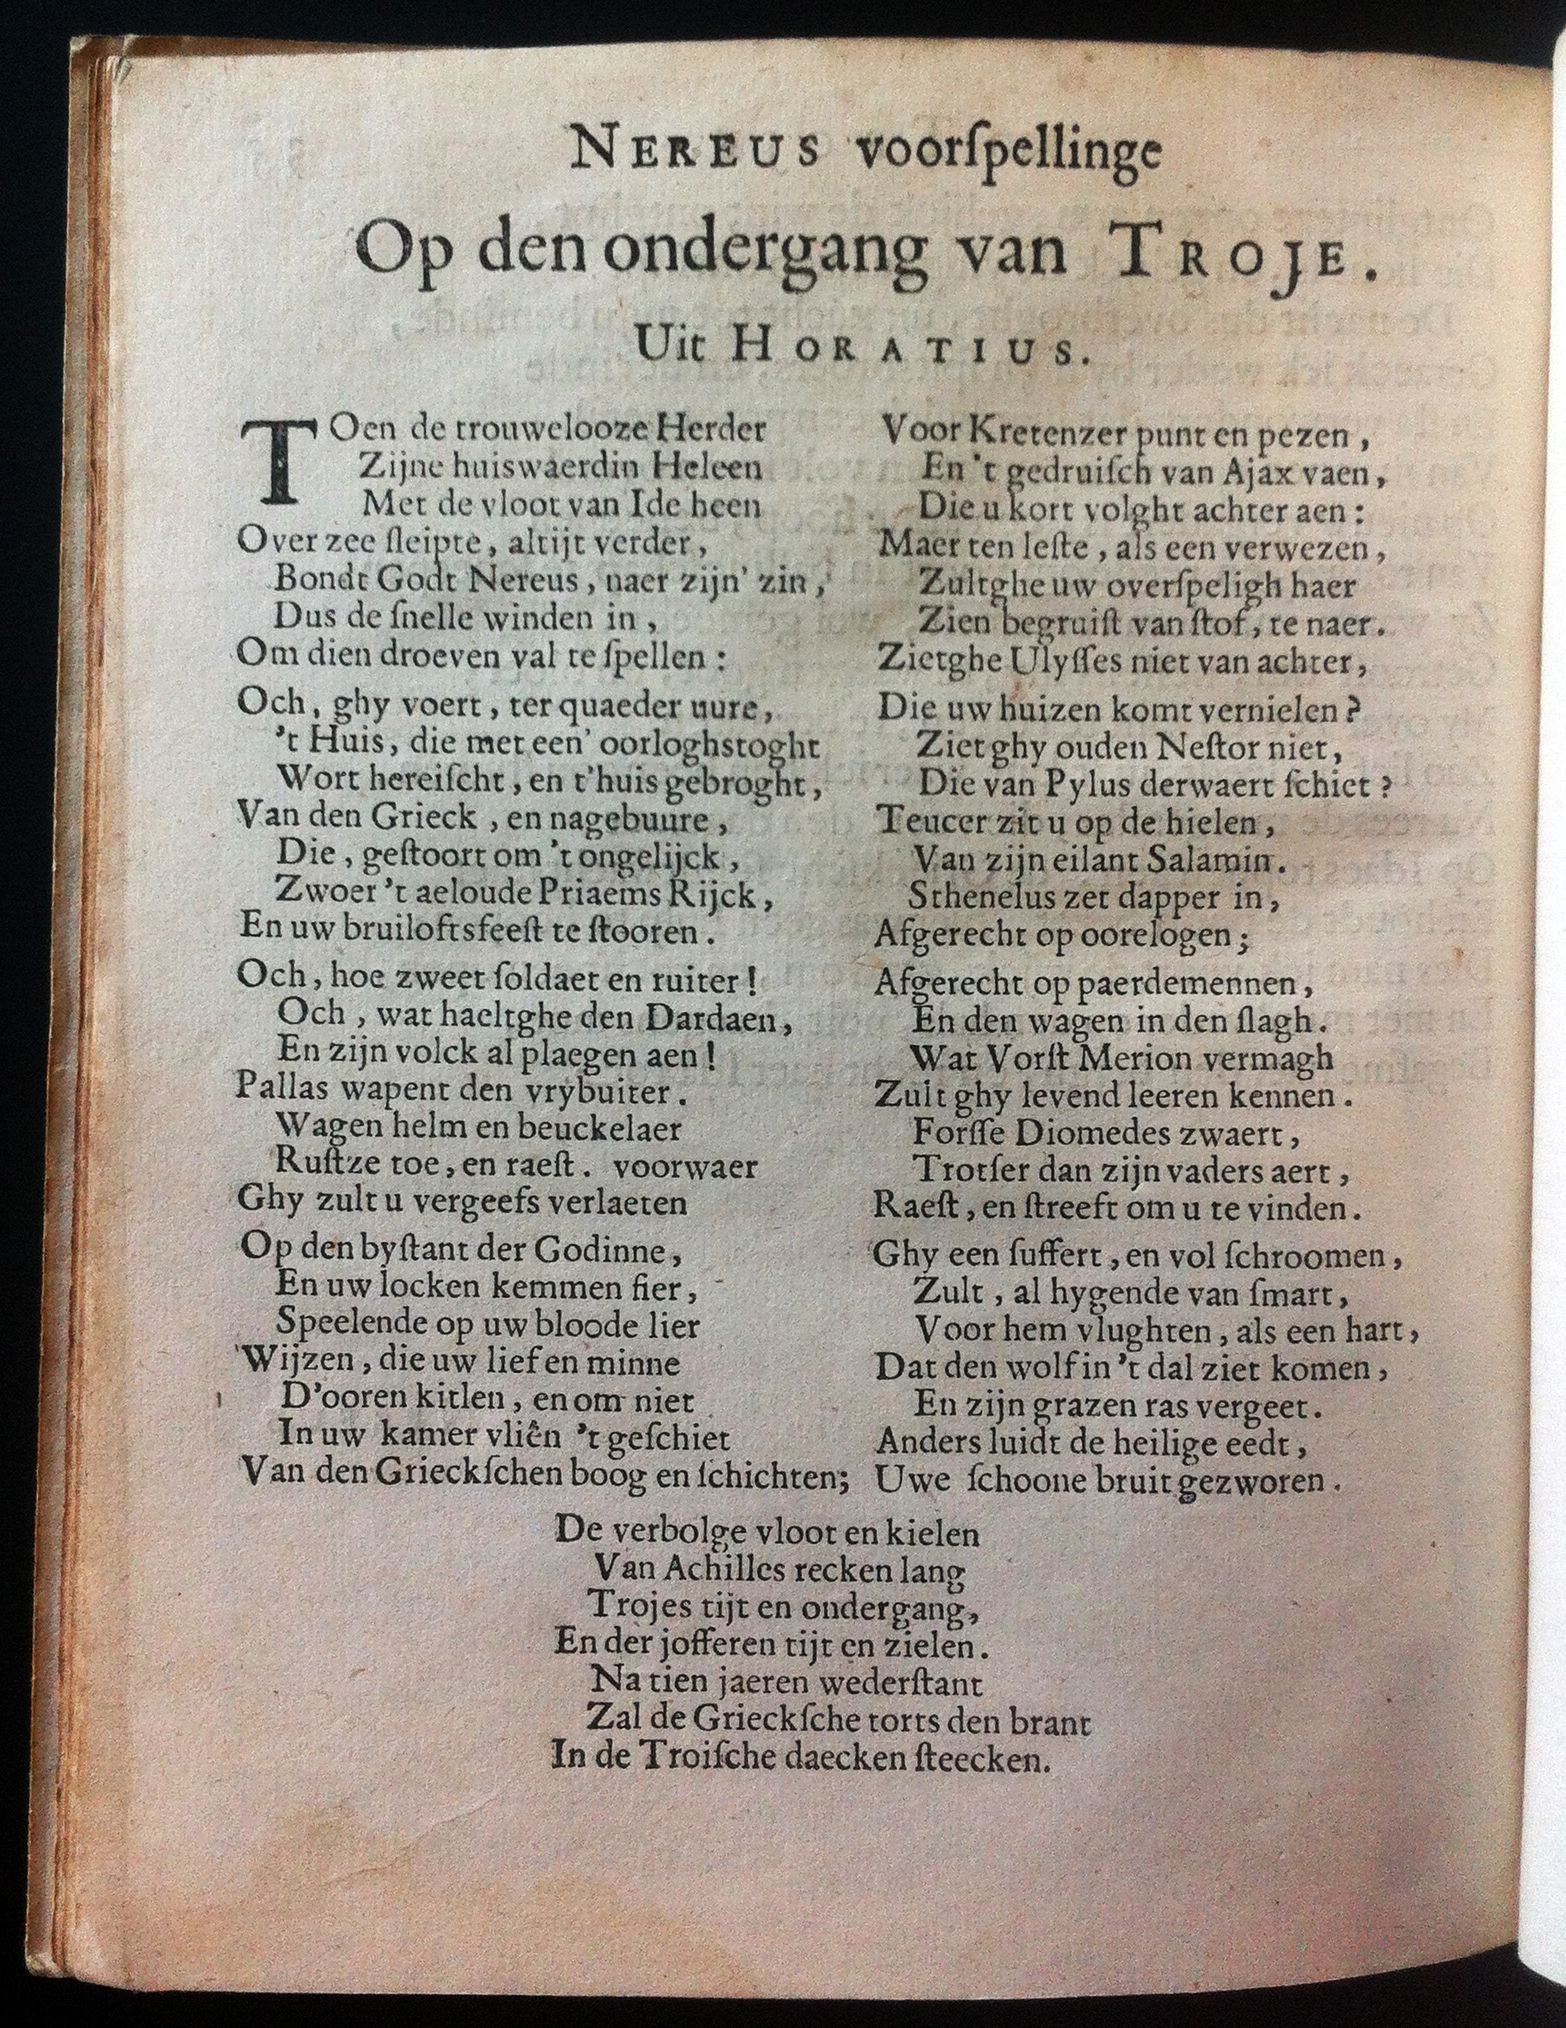 NEREUS voorſpellinge
Op den ondergang van TROJE.
Uit HORATIUS.
TOen de trouwelooze Herder
Zijne huiswaerdin Heleen
Met de vloot van Ide heen
Over zee ſleipte, altijt verder,
Bondt Godt Nereus, naer zijn' zin,
Dus de ſnelle winden in,
Om dien droeven val te ſpellen:
Och, ghy voert, ter quaeder uure,
't Huis, die met een' oorloghstoght
Wort hereiſcht, en t'huis gebroght,
Van den Grieck, en nagebuure,
Die, geſtoort om 't ongelijck,
Zwoer 't aeloude Priaems Rijck,
En uw bruiloftsfeeſt te ſtooren.
Och, hoe zweet ſoldaet en ruiter!
Och, wat haeltghe den Dardaen,
En zijn volck al plaegen aen!
Pallas wapent den vrybuiter.
Wagen helm en beuckelaer
Ruſtze toe, en raeſt. voorwaer
Ghy zult u vergeefs verlaeten
Op den byſtant der Godinne,
En uw locken kemmen fier,
Speelende op uw bloode lier
Wijzen, die uw lief en minne
D'ooren kitlen, en om niet
In uw kamer vliên 't geſchiet
Van den Grieckſchen boog en ſchichten;
Voor Kretenzer punt en pezen,
En 't gedruiſch van Ajax vaen,
Die u kort volght achter aen:
Maer ten leſte, als een verwezen,
Zultghe uw overſpeligh haer
Zien begruiſt van ſtof, te naer.
Zietghe Ulyſſes niet van achter,
Die uw huizen komt vernielen?
Ziet ghy ouden Neſtor niet,
Die van Pylus derwaert ſchiet?
Teucer zit u op de hielen,
Van zijn eilant Salamin.
Sthenelus zet dapper in,
Afgerecht op oorelogen;
Afgerecht op paerdemennen,
En den wagen in den ſlagh.
Wat Vorſt Merion vermagh
Zult ghy levend leeren kennen.
Forſſe Diomedes zwaert,
Trotſer dan zijn vaders aert,
Raeſt, en ſtreeft om u te vinden.
Ghy een ſuffert, en vol ſchroomen,
Zult, al hygende van ſmart,
Voor hem vlughten, als een hart,
Dat den wolf in 't dal ziet komen,
En zijn grazen ras vergeet.
Anders luidt de heilige eedt,
Uwe ſchoone bruit gezworen.
De verbolge vloot en kielen
Van Achilles recken lang
Trojes tijt en ondergang,
En der jofferen tijt en zielen.
Na tien jaeren wederſtant
Zal de Grieckſche torts den brant
In de Troiſche daecken ſteecken.